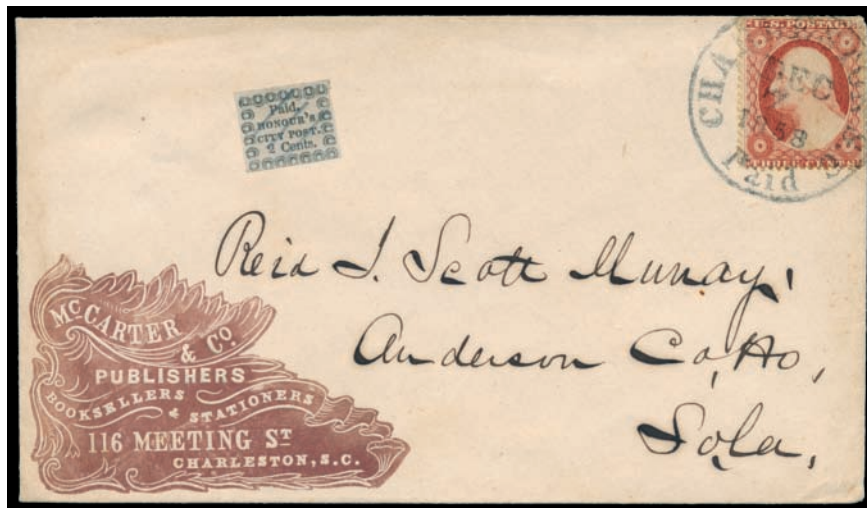 U.S. POSTAGE
CHA
DEC
1858
Paid
THREE CENTS
Paid.
HONOUR'S
CITY POST.
2 Cents.
J. Scott Murray,
Anderson Co, Ho,
So, Ca,
McCARTER
& CO
PUBLISHERS
BOOKSELLERS
& STATIONERS
116 MEETING ST
CHARLESTON, S.C.